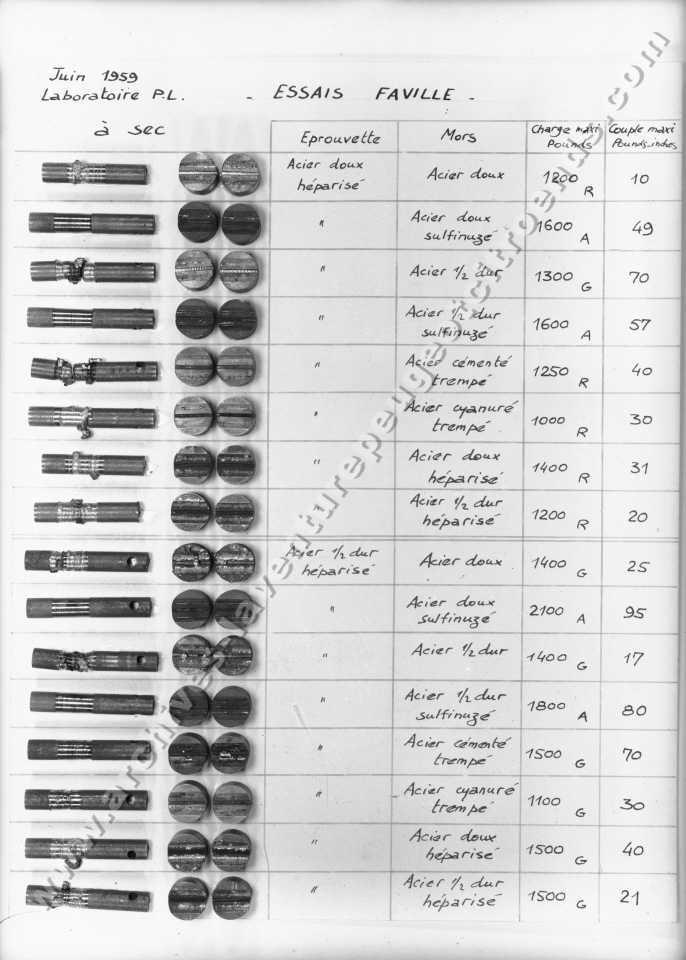 Juin 1959
Laboratoire P.L. - ESSAIS FAVILLE -
à sec
Eprouvette Mors Charge maxi Pounds Couple maxi Pounds-inches
Acier doux héparisé Acier doux 1200 R 10
" Acier doux sulfinuzé 1600 A 49
" Acier 1/2 dur 1300 G 70
" Acier 1/2 dur sulfinuzé 1600 A 57
" Acier cémenté trempé 1250 R 40
" Acier cyanuré trempé 1000 R 30
" Acier doux héparisé 1400 R 31
" Acier 1/2 dur héparisé 1200 R 20
Acier 1/2 dur héparisé Acier doux 1400 G 25
" Acier doux sulfinuzé 2100 A 95
" Acier 1/2 dur 1400 G 17
" Acier 1/2 dur sulfinuzé 1800 A 80
" Acier cémenté trempé 1500 G 70
" Acier cyanuré trempé 1100 G 30
" Acier doux héparisé 1500 G 40
" Acier 1/2 dur héparisé 1500 G 21
www.archives.laventurepeugeotcitroends.com